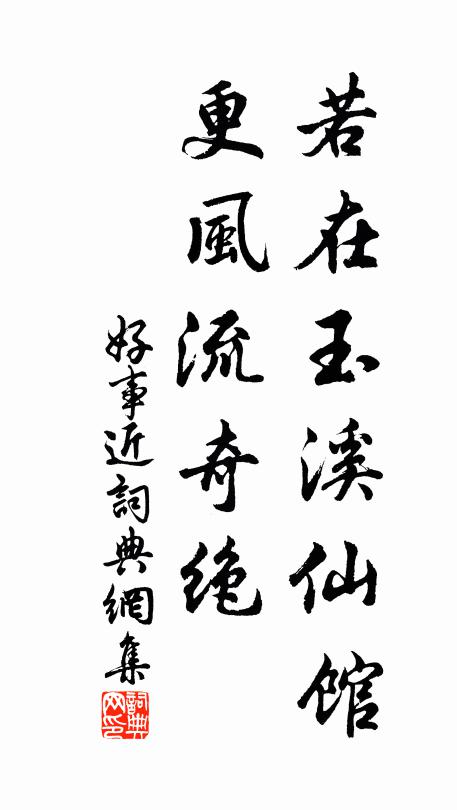 若在玉溪仙館
更風流奇絶
好事近詞典網集
詞典网印